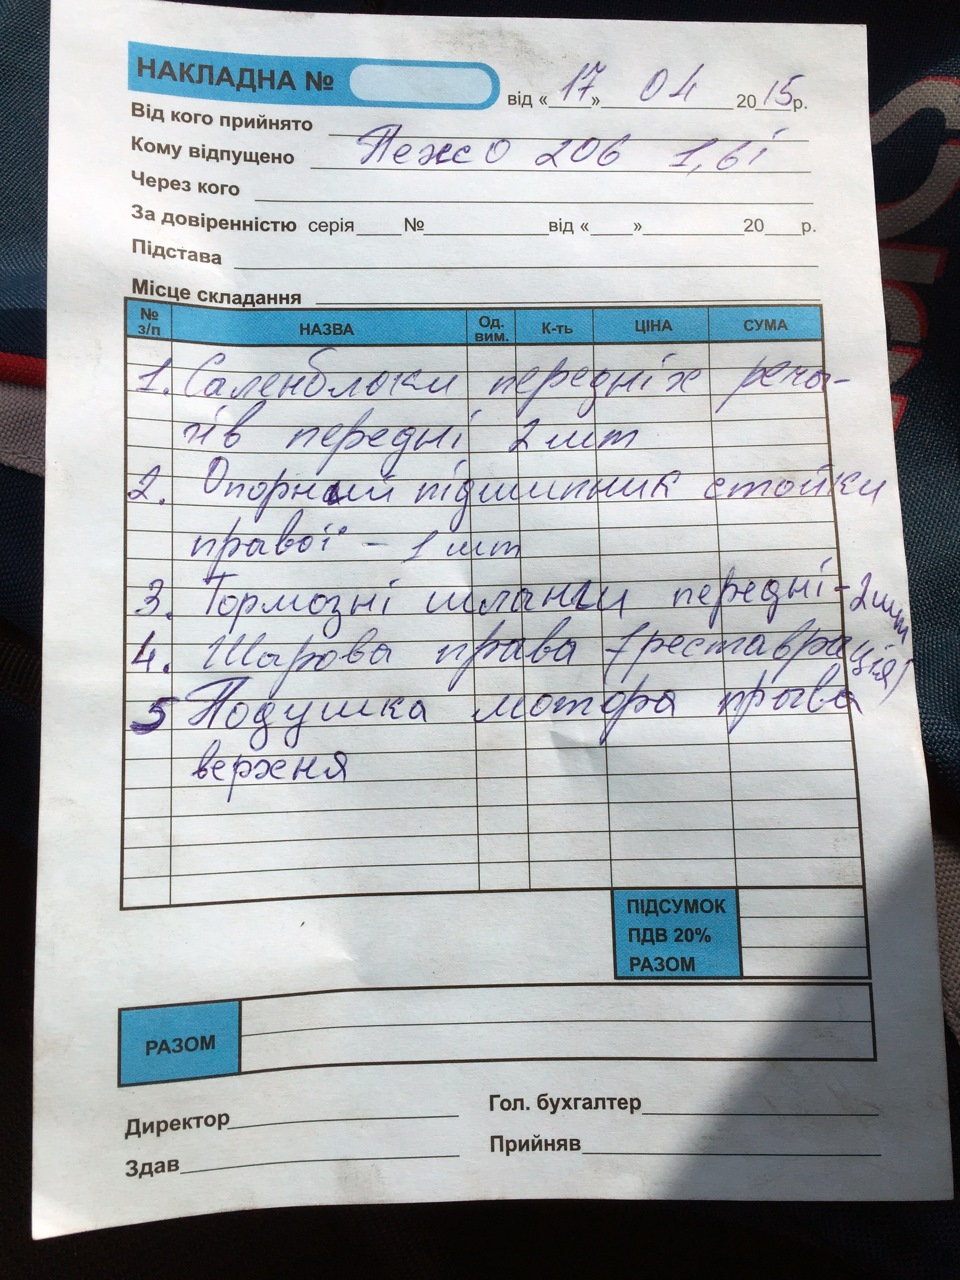 НАКЛАДНА № від «17» 04 2015р.
Від кого прийнято
Кому відпущено Пежо 206 1,6і
Через кого
За довіренністю серія № від « » 20 р.
Підстава
Місце складання
№ з/п НАЗВА Од. вим. К-ть ЦІНА СУМА
1. Саленблоки передніх реча-
гів передні 2 шт
2. Опорний підшипник стойки
правої - 1 шт
3. Тормозні шланги передні - 2 шт
4. Шарова права (реставрація)
5 Подушка мотора права
верхня
ПІДСУМОК
ПДВ 20%
РАЗОМ
РАЗОМ
Директор Гол. бухгалтер
Здав Прийняв